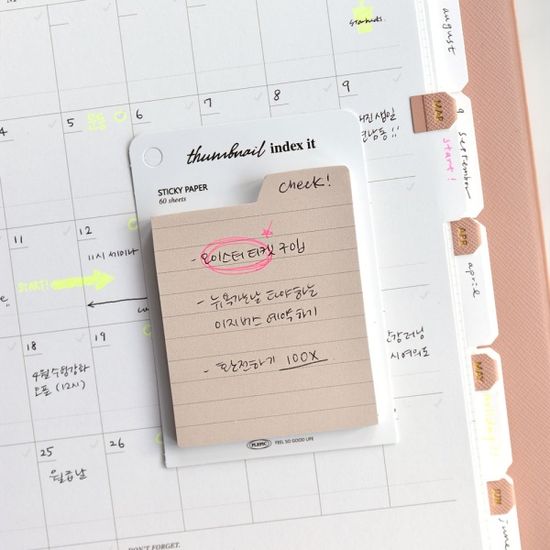 stands.
august
4
5
6
7
8
9
MAR
9 september
start!
thumbnail index it
STICKY PAPER
60 sheets
Check!
- 오이스터 티켓 구입
- 뉴욕가는날 타야하는
이지버스 예약하기
- 환전하기 100X
11
12
11시 세미나
START!
18
19
4월 수강강화
오픈 (12시)
25
26
월급날
APR
april
MAY
JUN
june
PLEPIC
FEEL SO GOOD LIFE
DON'T FORGET.